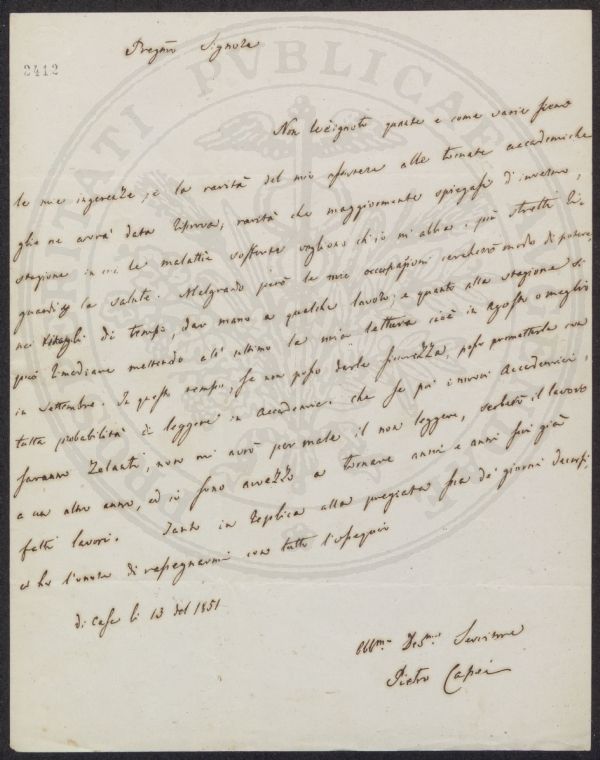 Pregmo Signore
2412
Non le è ignoto quante e come varie sieno
le mie ingerenze, e la rarità del mio assistere alle tornate accademiche
glie ne avrà data riprova; rarità che maggiormente spiegasi d'inverno,
stagione in cui le malattie sofferte vogliono ch'io mi abbia più stretti ri-
guardi la salute. Malgrado però le mie occupazioni cercherò modo di potere,
nei ritagli di tempo, dar mano a qualche lavoro; e quanto alla stagione si
può rimediare mettendo la mia lettura cioè in agosto o meglio
in settembre. In questo tempo, se non posso darle sicurezza, posso prometterle con
tutta probabilità di leggere in Accademia: che se poi i nuovi Accademici,
saranno zelanti, non mi avrò per male il non leggere, serberò il lavoro
a un altro anno, ed io sono avvezzo a tornare anni e anni su già
fatti lavori. Tanto in replica alla pregiata sua de' giorni decorsi,
ed ho l'onore di rassegnarmi con tutto l'ossequio
di Casa li 13 del 1851
Obbmo Devmo Servitore
Pietro Capei
PROSPERITATI PVBLICAE AVGENDAE